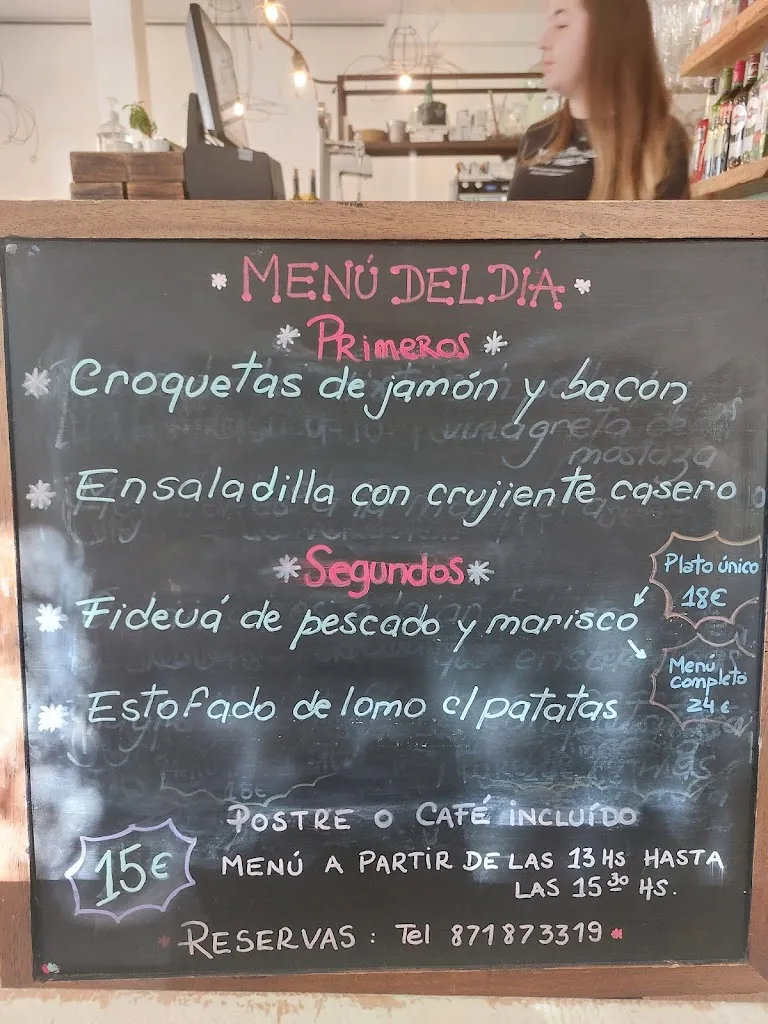 MENÚ DEL DÍA
PRimeROS
Croquetas de jamón y bacón
vinagreta
mostaza
Ensaladilla con crujiente casero
Segundos
Plato único
18€
Fideuá de pescado y marisco
Menú
completo
24€
Estofado de lomo c/patatas
POSTRE O CAFÉ INCLUÍDO
15€
MENÚ A PARTIR DE LAS 13 HS HASTA
LAS 15 30 HS.
RESERVAS : Tel 871873319